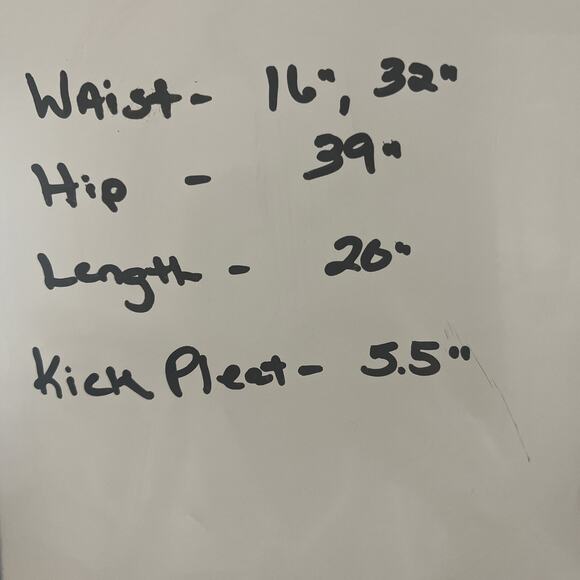 Waist- 16", 32"
Hip - 39"
Length - 26"
Kick Pleat- 5.5"